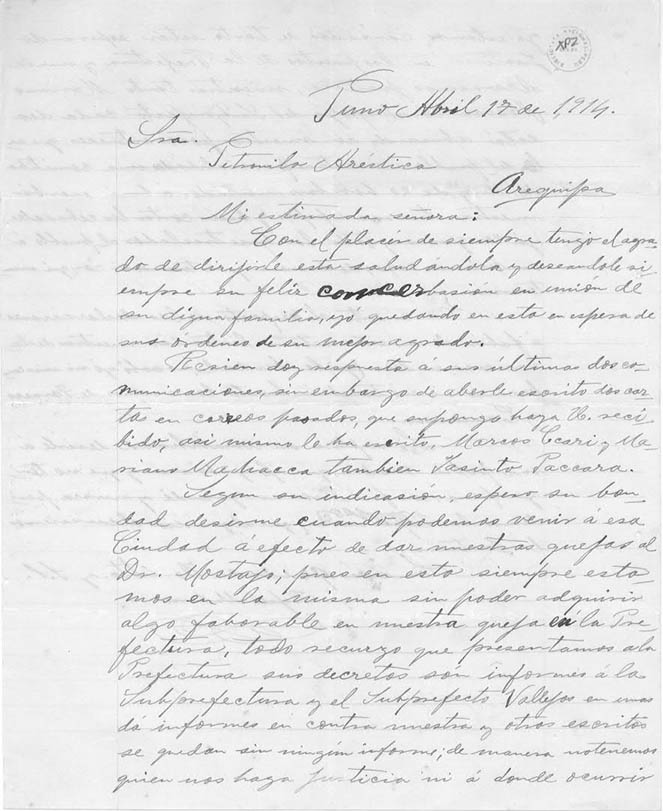 Puno Abril 17 de 1,914.
Sra.
Petronila Aréstica
Arequipa
Mi estimada señora:
Con el placér de siempre tengo el agra-
do de dirijirle esta saludándola y deseandole si-
empre su feliz concerbasión en unión de
su digna familia, yó quedando en esta en espera de
sus órdenes de su mejor agrado.
Resien doy respuesta á sus últimas dos co-
municaciones, sin embargo de aberle escrito dos car-
tas en correos pasados, que supongo haya U. reci-
bido, asi mismo le ha escrito, Marcos Ccari y Ma-
riano Machacca tambien Jasinto Paccara.
Segun su indicasión, espero su bon-
dad desirme cuando podemos venir á esa
Ciudad á efecto de dar nuestras quejas al
Dr. Mostajo; pues en esta siempre esta-
mos en la misma sin poder adquirir
algo faborable en nuestra queja en la Pre-
fectura, todo recurzo que presentamos a la
Prefectura sus decretos son informes á la
Subprefectura y el Subprefecto Vallejos en unas
dá informes en contra nuestra y otros escritos
se quedan sin ningún informe; de manera no tenemos
quien nos haga justicia ni á donde ocurrir